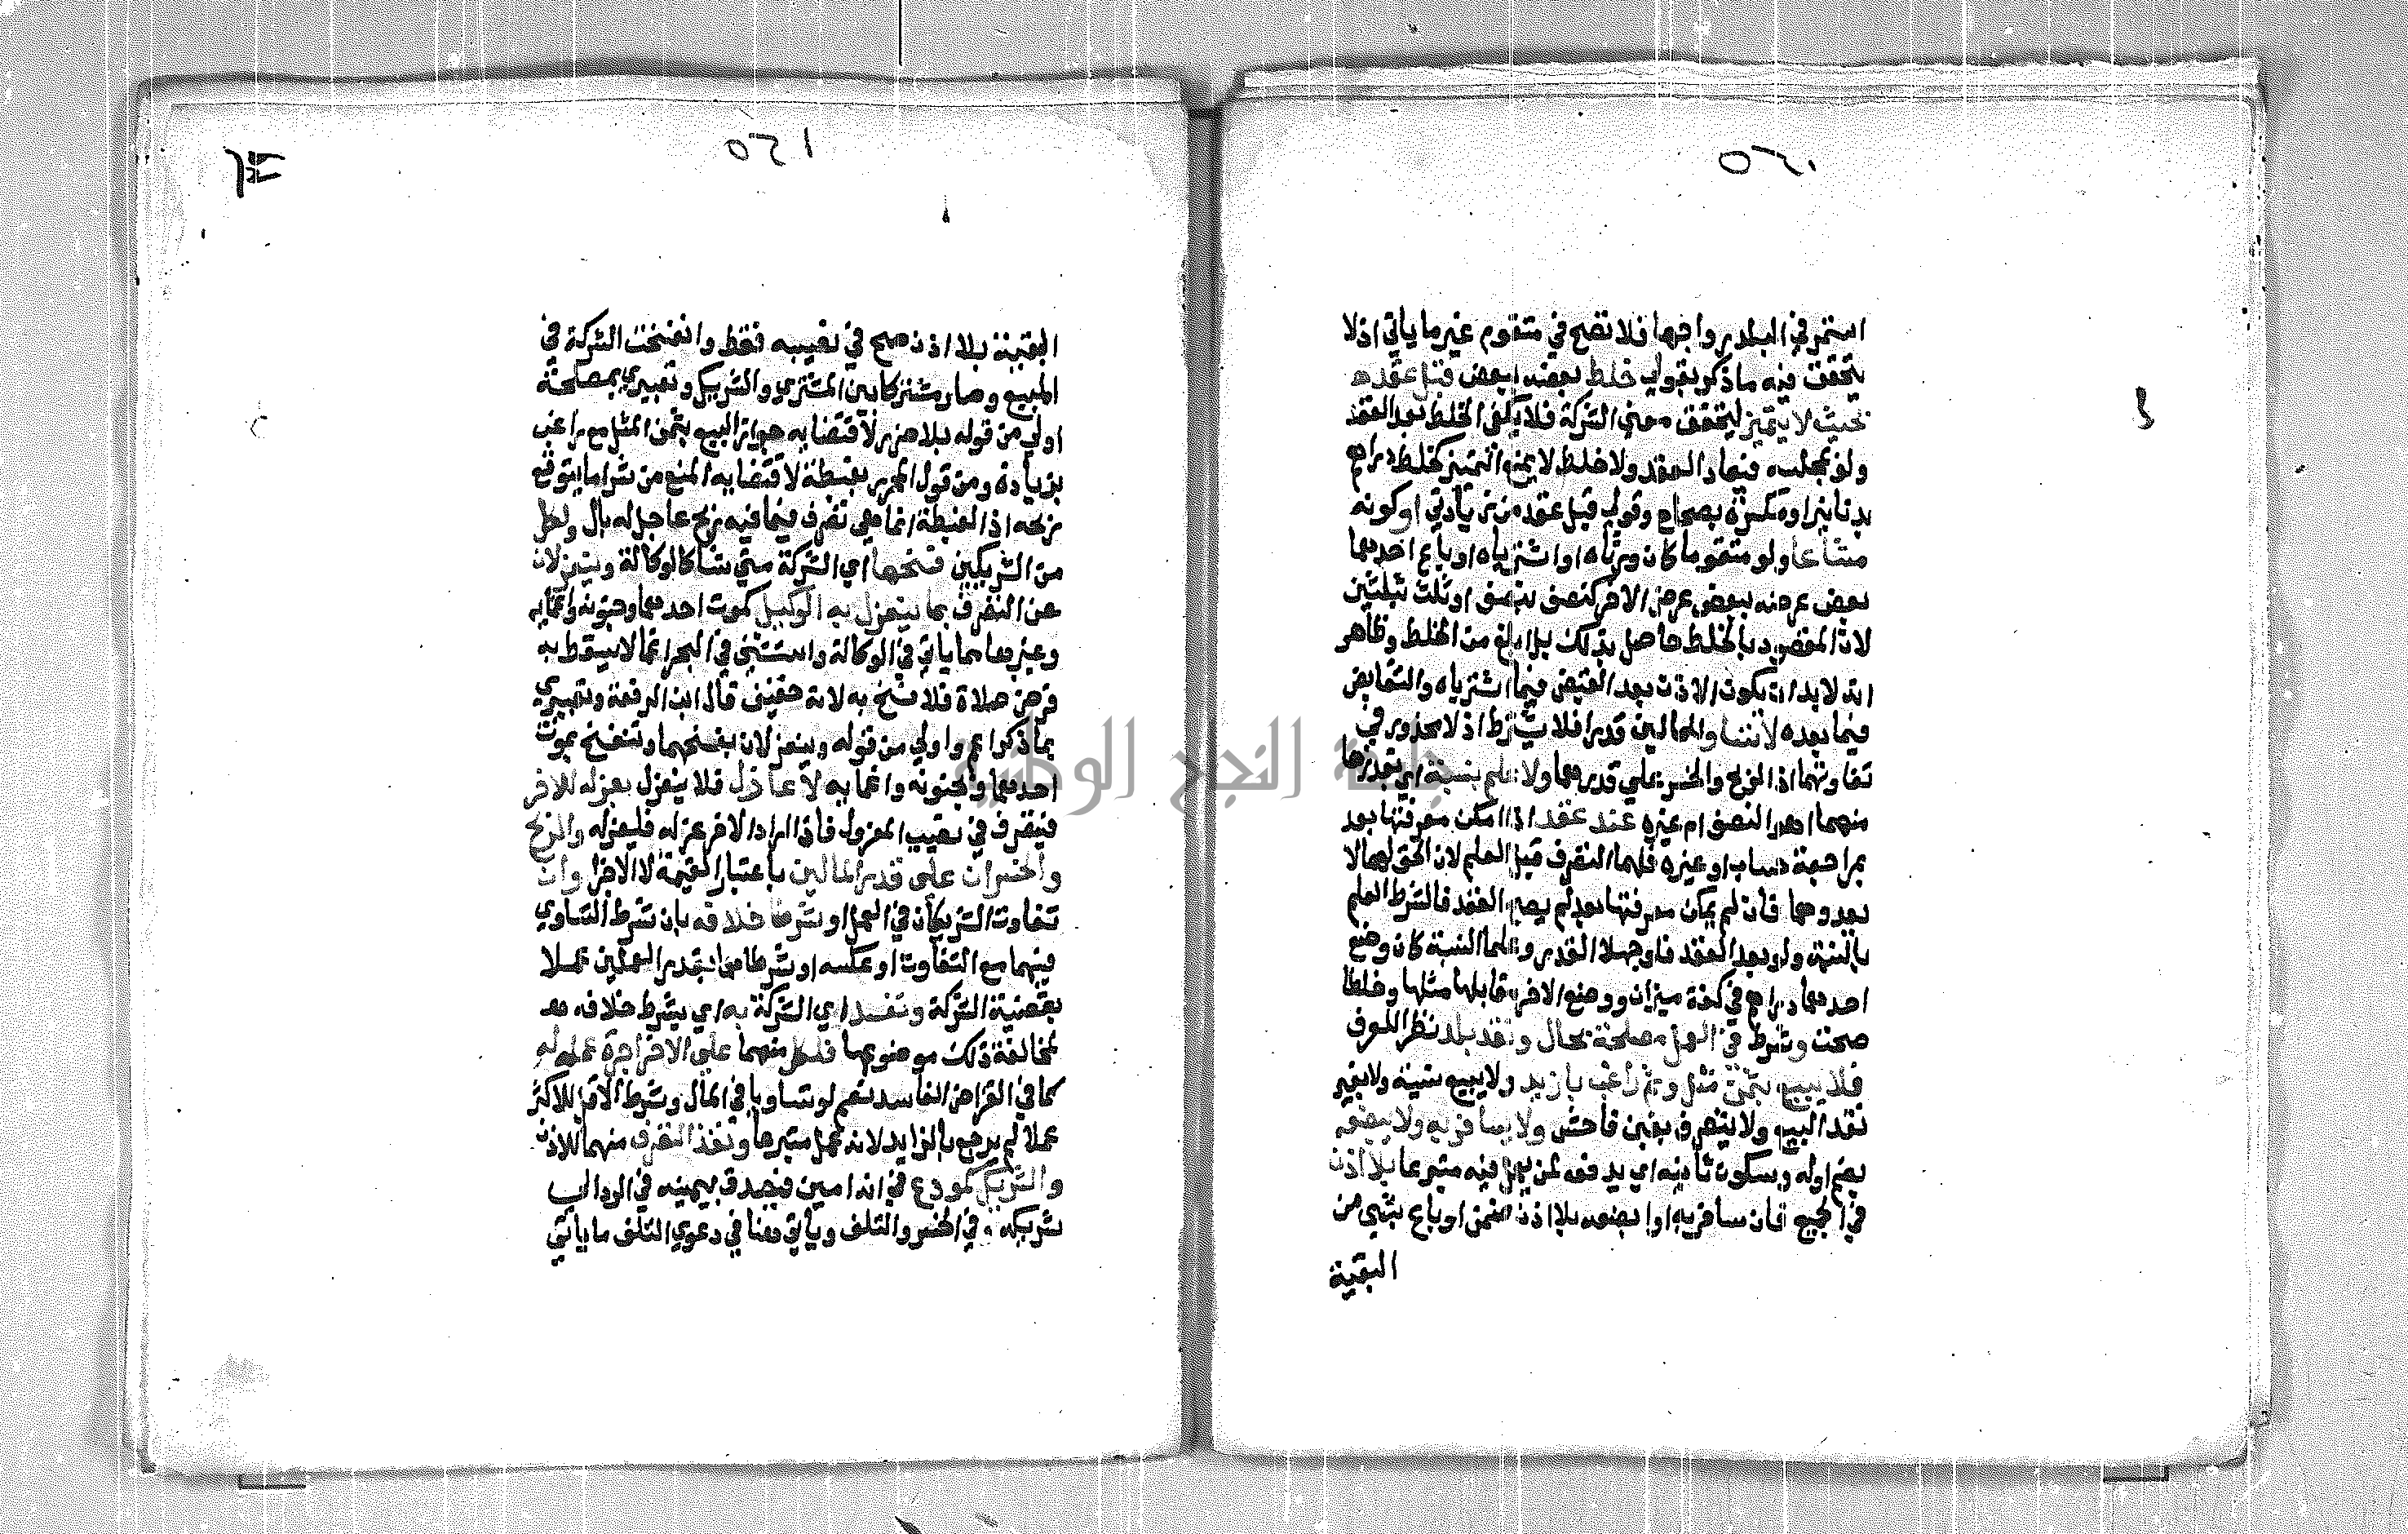 ٥٢٠
استمر في البلد رواجها فلا تصح في متقوم غير ما ياتي اذ لا
يتحقق فيه ما ذكر بقولي خلط بعضه ببعض قبل عقده
بحيث لا يتميز ليتحقق معني الشركة فلا يكفي الخلط بعد العقد
ولو بمجلسه فيعاد العقد ولا خلط لا يمنع التميز كخلط دراهم
بدنانير او مكسرة بصحاح وقولي قبل عقده من زيادتي او كونه
مشاعا ولو متقوما كان ورثاه او اشترياه او باع احدهما
بعض عرضه ببعض عرض الاخر كنصف بنصف او ثلث بثلثين
لان المقصود بالخلط حاصل بذلك بل ابلغ من الخلط وظاهر
انه لا بد ان يكون الاذن بعد القبض فيما اشترياه والتقابض
فيما بعده لا تساوالمالين قدرا فلا يشترط اذ لا محذور في
تفاوتهما اذ الربح والخسر علي قدرهما ولا علم بنسبة اي بقدرها
منهما اهو النصف ام غيره عند عقد اذا امكن معرفتها بعد
بمراجعة حساب او غيره فلهما التصرف قبل العلم لان الحق لهما لا
يعدوهما فان لم يمكن معرفتها بعد لم يصح العقد فالشرط العلم
بالنسبة ولو بعد العقد فلو جهلا القدر وعلما النسبة كان وضع
احدهما دراهم في كفة ميزان ووضع الاخر مقابلها مثلها وخلطا
صحت وشرط في العمل مصلحة بحال ونقد بلد نظرا للعرف
فلا يبيع بثمن مثل وثم راغب بازيد ولا يبيع بنسيئة ولا بغير
نقد البيع ولا يتصرف بغبن فاحش ولا يسافر به ولا يبضعه
بضم اوله وسكون ثانيه اي يدفعه لمن يعمل فيه متبرعا بلا اذن
في الجميع فان سافر به او ابضعه بلا اذن ضمن او باع بشي من
البقية
٥٢١
البقية بلا اذن صح في نصيبه فقط وانفسخت الشركة في
المبيع وصار مشتركا بين المشتري والشريك وتعبيري بمصلحة
اولي من قوله بلا ضرر لاقتضايه جواز البيع بثمن المثل مع راغب
بزيادة ومن قول المحرر بغبطة لاقتضايه المنع من شرا ما يتوقع
ربحه اذ الغبطة انما هي تصرف فيما فيه ربح عاجل له بال ولكل
من الشريكين فسخها اي الشركة متي شا كالوكالة وينعزلان
عن التصرف بما ينعزل به الوكيل كموت احدهما وجنونه واغمايه
وغيرهما مما ياتي في الوكالة واستثني في البحر اغما لا يسقط به
فرض صلاة فلا فسخ به لانه خفيف قال ابن الرفعة وتعبيري
بما ذكر اعم واولي من قوله وينعزلان بفسخهما وتنفسخ بموت
احدهما وبجنونه واغمايه لا عازل فلا ينعزل بعزله للاخر
فيتصرف في نصيب المعزول فاذا اراد الاخر عزله فليعزله والربح
والخسران علي قدر المالين باعتبار القيمة لا الاجزا وان
تفاوت الشريكان في العمل او شرطا خلافه بان شرط التساوي
بينهما مع التفاوت او عكسه او شرطاهما بقدر العملين عملا
بقضية الشركة وتفسد اي الشركة به اي بشرط خلافه
لمخالفة ذلك موضوعها فلكل منهما علي الاخر اجرة عمله له
كما في القراض الفاسد نعم لو تساويا في المال وشرط الاقل للاكثر
عملا لم يرجع بالزايد لانه عمل متبرعا وتنفذ التصرف منهما للاذن
والشريك كمودع في انه امين فيصدق بيمينه في الرد الي
شريكه . في الخسر والتلف وياتي هنا في دعوي التلف ما ياتي
جامعة النجاح الوطنية